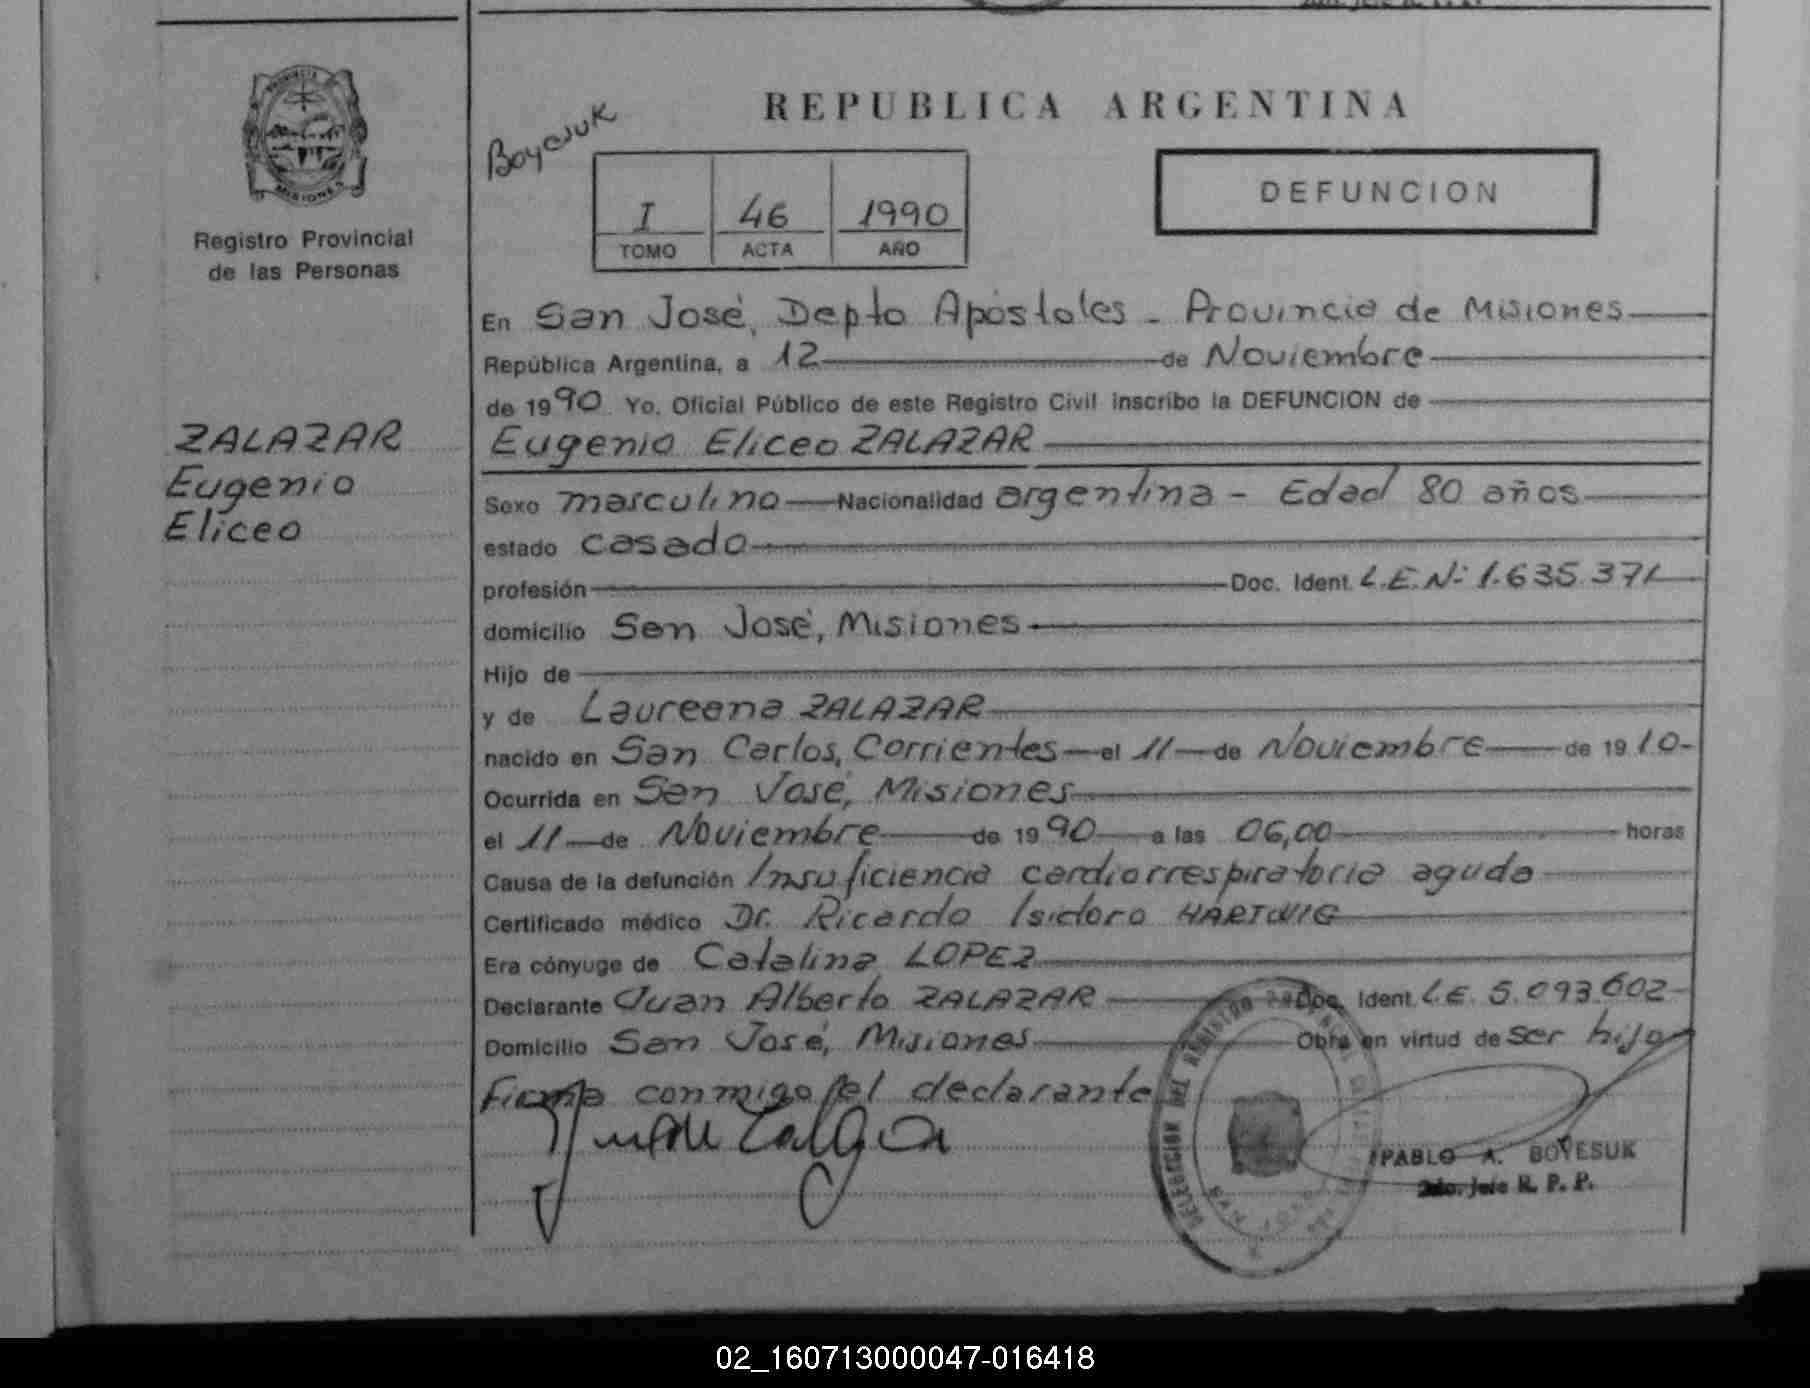 REPUBLICA ARGENTINA
Boyesuk
DEFUNCION
I 46 1990
TOMO ACTA AÑO
PROVINCIA
MISIONES
Registro Provincial
de las Personas
ZALAZAR
Eugenio
Eliceo
En San José, Depto Apóstoles - Provincia de Misiones
República Argentina, a 12 de Noviembre
de 1990 Yo, Oficial Público de este Registro Civil inscribo la DEFUNCION de
Eugenio Eliceo ZALAZAR
Sexo masculino Nacionalidad argentina - Edad 80 años
estado casado
profesión Doc. Ident. L.E. Nº 1.635.371
domicilio San José, Misiones
Hijo de
y de Laureana ZALAZAR
nacido en San Carlos, Corrientes el 11 de Noviembre de 1910-
Ocurrida en San José, Misiones
el 11 de Noviembre de 1990 a las 06,00 horas
Causa de la defunción Insuficiencia cardiorrespiratoria aguda
Certificado médico Dr. Ricardo Isidoro HARTWIG
Era cónyuge de Catalina LOPEZ
Declarante Juan Alberto ZALAZAR Doc. Ident. L.E. 5.093.602
Domicilio San José, Misiones Obra en virtud de ser hijo
Firma conmigo el declarante
DELEGACION DEL REGISTRO
PABLO A. BOYESUK
2do. Jefe R. P. P.
02_160713000047-016418